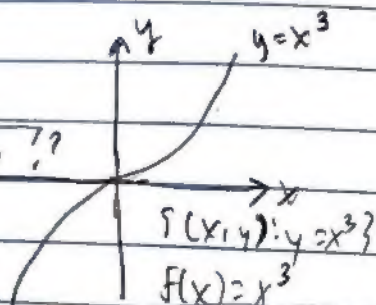 y
y=x³
??
x
{(x,y): y=x³}
f(x)=x³